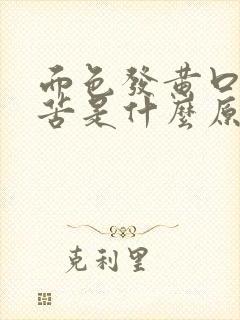 面色發黃口
苦是什麼原
克利里